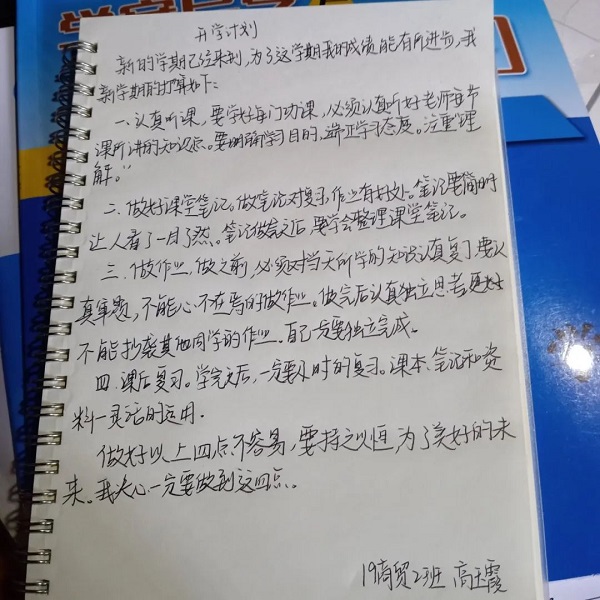 开学计划
新的学期已经来到,为了这学期我的成绩能有所进步,我
新学期的打算如下:
一.认真听课,要学好每门功课,必须认真听好老师每节
课所讲的知识点。要明确学习目的,端正学习态度。注重"理
解。"
二.做好课堂笔记。做笔记对复习,作业有好处。笔记要简明
让人看了一目了然。笔记做完之后要学会整理课堂笔记。
三.做作业,做之前,必须对当天所学的知识认真复习,要认
真审题,不能心不在焉的做作业。做完后认真独立思考更好
不能抄袭其他同学的作业.自己一定要独立完成。
四.课后复习。学完之后,一定要及时的复习。课本、笔记和资
料一灵活的运用.
做好以上四点不容易,要持之以恒,为了美好的未
来。我决心一定要做到这四点。
19商贸2班 高玉霞